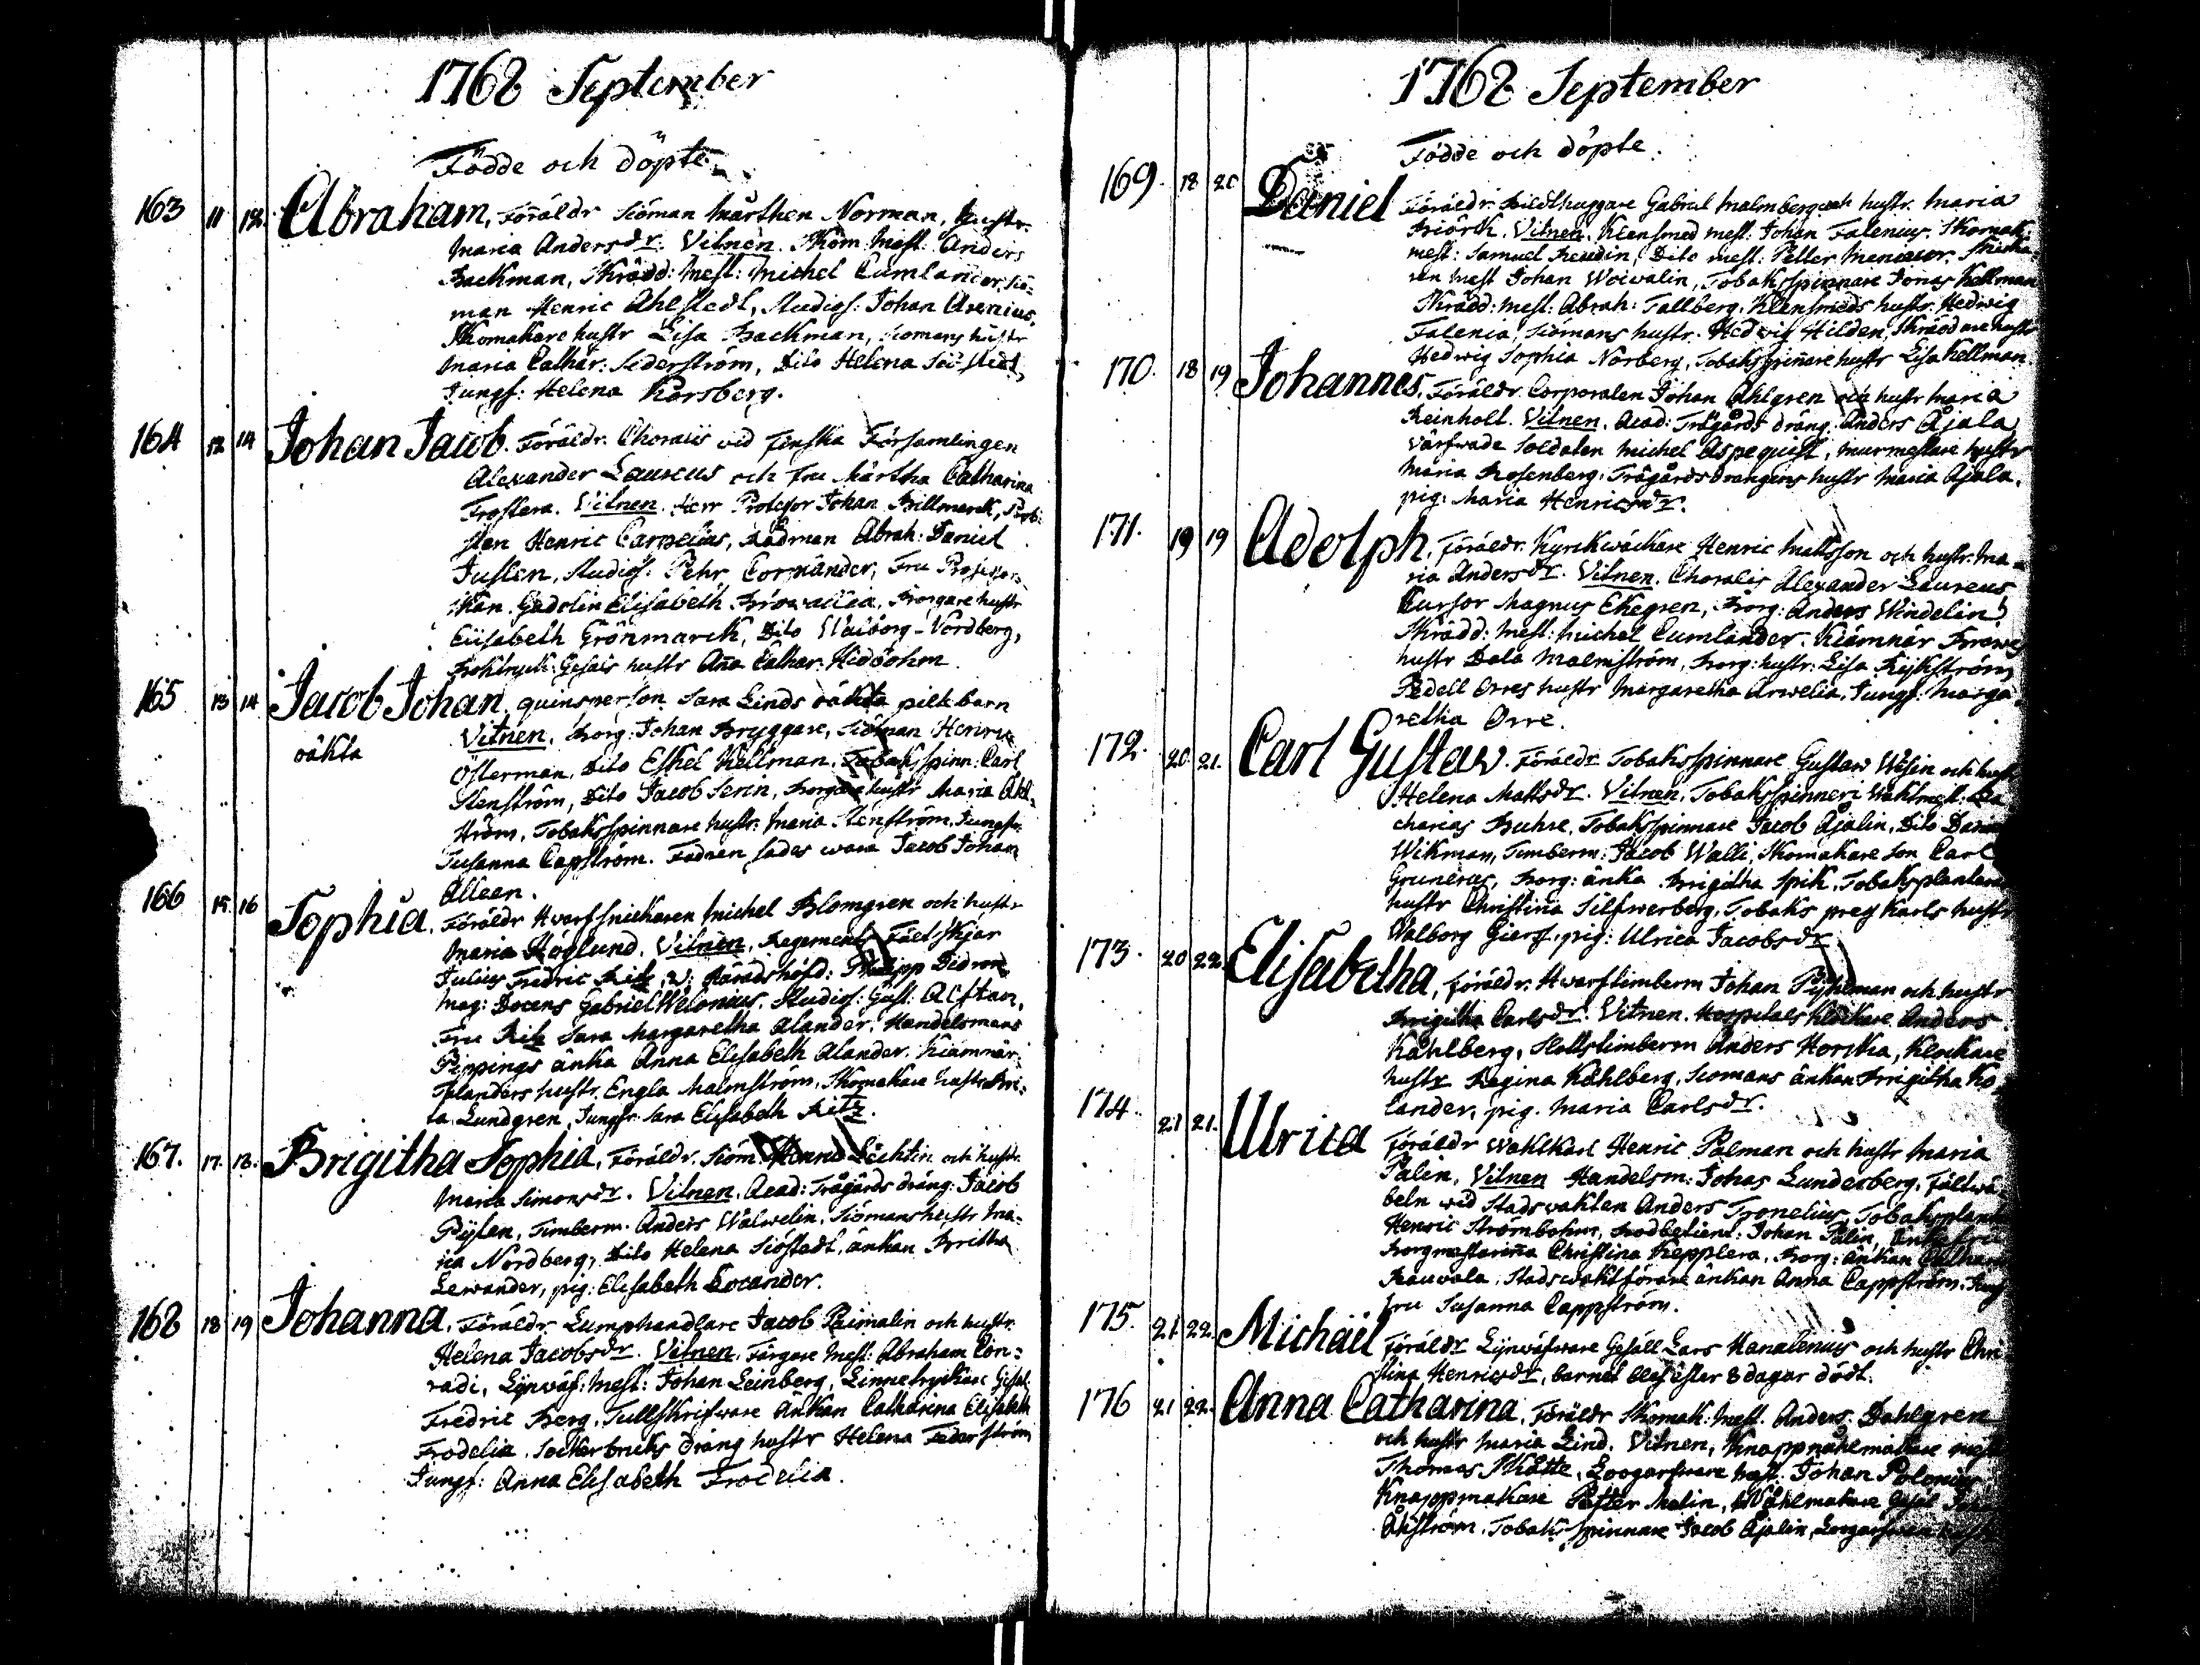 1768 September
Födde och döpte
163 11 12. Abraham, Föräldr Siöman Mårthen Norman, hustr.
Maria Andersdr. Vitnen. Skom: Mest: Anders
Backman, Skrädd: Mest: Michel Cumlander, Siö-
man Henric Ahlstedt, Studios: Johan Avenius,
Skomakare hustr Lisa Backman, Siomans hustr
Maria Cathar: Sederström, Dito Helena Siöstedt,
Jungf: Helena Korsberg.
164 12 14 Johan Jacob. Föräldr. Choralis vid Finska Församlingen
Alexander Laureus och Fru Märtha Catharina
Frostera. Vitnen. Herr Professor Johan Billmark, Prob-
sten Henric Carpelius, Rådman Abrah: Daniel
Justen, Studios: Pehr Cornänder, Fru Professor-
skan Gadolin Elisabeth Browallia, Borgare hustr
Elisabeth Grönmarck, Dito Walborg Nordberg,
Gesäls hustr Aña Cathar: Hidbohm.
165 13 14 Jacob Johan, quinsperson Sara Linds oäkta pilt barn
oäkta Vitnen, Borg: Johan Bryggare, Siöman Henric
Österman, Dito Eskel Kellman, Tobaksspinn: Carl
Stenström, Dito Jacob Serin, Borgare hustr Maria Ahl-
ström, Tobaksspinnare hustr: Maria Stenström, Jungfr
Susanna Capström. Fadren sades wara Jacob Johan
Alleen.
166 15 16 Sophia, Föräldr Hwarfsnickaren Michel Blomgren och hustr
Maria Höglund. Vitnen, Regements Fältskjär
Julius Fredric Ritz, v. Häradshöfd: Philipp Didron,
Mag: Docens Gabriel Welonius, Studios: Gust: Alftan,
Fru Ritz Sara Margaretha Alander, Handelsmans
Pippings änka Anna Elisabeth Alander, Kiämnär
hustr. Engla Malmström, Skomakare hustr Bri-
ta Lundgren, Jungfr Sara Elisabeth Ritz.
167. 17. 18. Brigitha Sophia, Föräldr. Siöm: Lächtin och hustr.
Maria Simonsdr. Vitnen. Acad: Trägårds dräng: Jacob
Pyton, Timberm. Anders Walwelin, Siömans hustr Ma-
ria Nordberg, Dito Helena Siöstedt, änkan Britha
Lewander, pig: Elisabeth Locander.
168 18 19 Johanna, Föräldr Lumphandlare Jacob Reimalin och hustr.
Helena Jacobsdr. Vitnen, Färgare Mest: Abraham Con-
radi, Lynwäf: Mest: Johan Leinberg, Linnetryckare Gesäl
Fredric Berg, Tullskrifware Änkan Catharina Elisabeth
Frodelia, Sockerbruks dräng hustr Helena Federström
Jungf: Anna Elisabeth Frodelia.
1768 September
Födde och döpte.
169. 18 20 Daniel Föräldr. Bildthuggare Gabriel Malmberg och hustr. Maria
Biörck. Vitnen. Klensmed mest: Johan Falenius, Skomak:
mest: Samuel Reudin, Dito mest: Petter Menauer, Snicka-
ren mest Johan Woiwalin, Tobaksspinnare Jonas Kellman
Skrädd: mest: Abrah: Tallberg, Klensmeds hustr. Hedwig
Falenia, Siomans hustr. Hedwig Hilden, Skräddare hustr
Hedwig Sophia Norberg, Tobaksspiñare hustr Lisa Kellman.
170. 18 19 Johannes, Föräldr. Corporalen Johan Ahlgren och hustr Maria
Reinholt. Vitnen. Acad: Trägårds dräng Anders Ajala
värfwade Soldaten Michel Aspequist, murmestare hustr
Maria Rosenberg, Trägårdsdrangens hustr Maria Ajala,
pig: Maria Henricsdr.
171. 19 19 Adolph, Föräldr. Kyrckwäcktare Henric Mattsson och hustr. Ma-
ria Andersdr. Vitnen. Choralis Alexander Laureus
Cursor Magnus Ekegren, Borg: Anders Windelin,
Skrädd: Mest: Michel Cumlander, Kiämnär
hustr Dala Malmström, Borg: hustr: Lisa Rijkström,
Pedell Orres hustr Margaretha Arwelia, Jungf: Marga-
retha Orre.
172. 20. 21. Carl Gustaw. Föräldr Tobaksspinnare Gustaw Wesin och hust
Helena Mattsdr. Vitnen, Tobaksspinneri Waktmest: Za-
charias Buhre, Tobaksspinnare Jacob Ajalin, Dito
Wikman, Timberm: Jacob Walli, Skomakare son Carl
Gruneras, Borg: änka Brigitha Spik, Tobaksplantare
hustr Christina Silfwerberg, Tobaks pres karls hustr
Walborg Giers, pig: Ulrica Jacobsdr.
173. 20 22. Elisabetha, Föräldr. Hwarftimberm Johan Pyhlman och hustr
Brigitha Carlsdr. Vitnen. Hospitals klockare Anders
Kåhlberg, Slottstimberm Anders Horcka, Klockare
hustr Regina Kåhlberg, Siomans änkan Brigitha Ko-
lander, pig. Maria Carlsdr.
174. 21 21. Ulrica Föräldr Waktkarl Henric Palman och hustr Maria
Palin, Vitnen Handelsm: Johas Lunderberg, Fältwä-
beln vid Stadsvakten Anders Tronelius, Tobaksplant
Henric Strömbohm, Johan Palin,
Borgmestariña Christina Kepplera, Borg: änkan
Rauvola, Stadswaktförare änkan Anna Cappström, Jung
fru Susanna Cappström.
175. 21 22. Michäel Föräldr Lijnwäfware Gesäll Lars Hanelenius och hustr Chri
stina Henricsdr, barnet blef efter 8 dagar dödt.
176 21 22. Anna Catharina, Föräldr Skomak: Mest. Anders Dahlgren
och hustr Maria Lind. Vitnen, Knappnåhlmakare mest
Thomas Skötte, Loogarfware mest: Johan Polenius
Knappmakare Petter Melin, Nåhlmakare Gesäl
Åkström, Tobaksspinnare Jacob Ajalin,